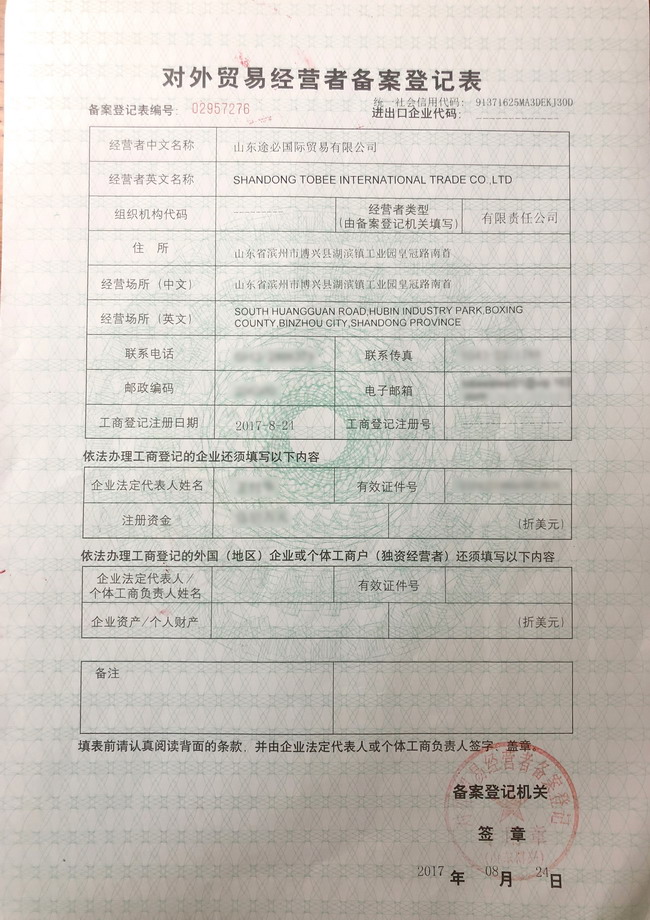 对外贸易经营者备案登记表
统一社会信用代码： 91371625MA3DEKJ30D
备案登记表编号： 02957276 进出口企业代码：
经营者中文名称 山东途必国际贸易有限公司
经营者英文名称 SHANDONG TOBEE INTERNATIONAL TRADE CO.,LTD
组织机构代码 经营者类型 有限责任公司
(由备案登记机关填写)
住 所 山东省滨州市博兴县湖滨镇工业园皇冠路南首
经营场所（中文） 山东省滨州市博兴县湖滨镇工业园皇冠路南首
经营场所（英文） SOUTH HUANGGUAN ROAD,HUBIN INDUSTRY PARK,BOXING
COUNTY,BINZHOU CITY,SHANDONG PROVINCE
联系电话 联系传真
邮政编码 电子邮箱
工商登记注册日期 2017-8-24 工商登记注册号
依法办理工商登记的企业还须填写以下内容
企业法定代表人姓名 有效证件号
注册资金 (折美元)
依法办理工商登记的外国（地区）企业或个体工商户（独资经营者）还须填写以下内容
企业法定代表人/
个体工商负责人姓名 有效证件号
企业资产/个人财产 (折美元)
备注
填表前请认真阅读背面的条款，并由企业法定代表人或个体工商负责人签字、盖章。
备案登记机关
签 章
2017 年 08 月 24 日